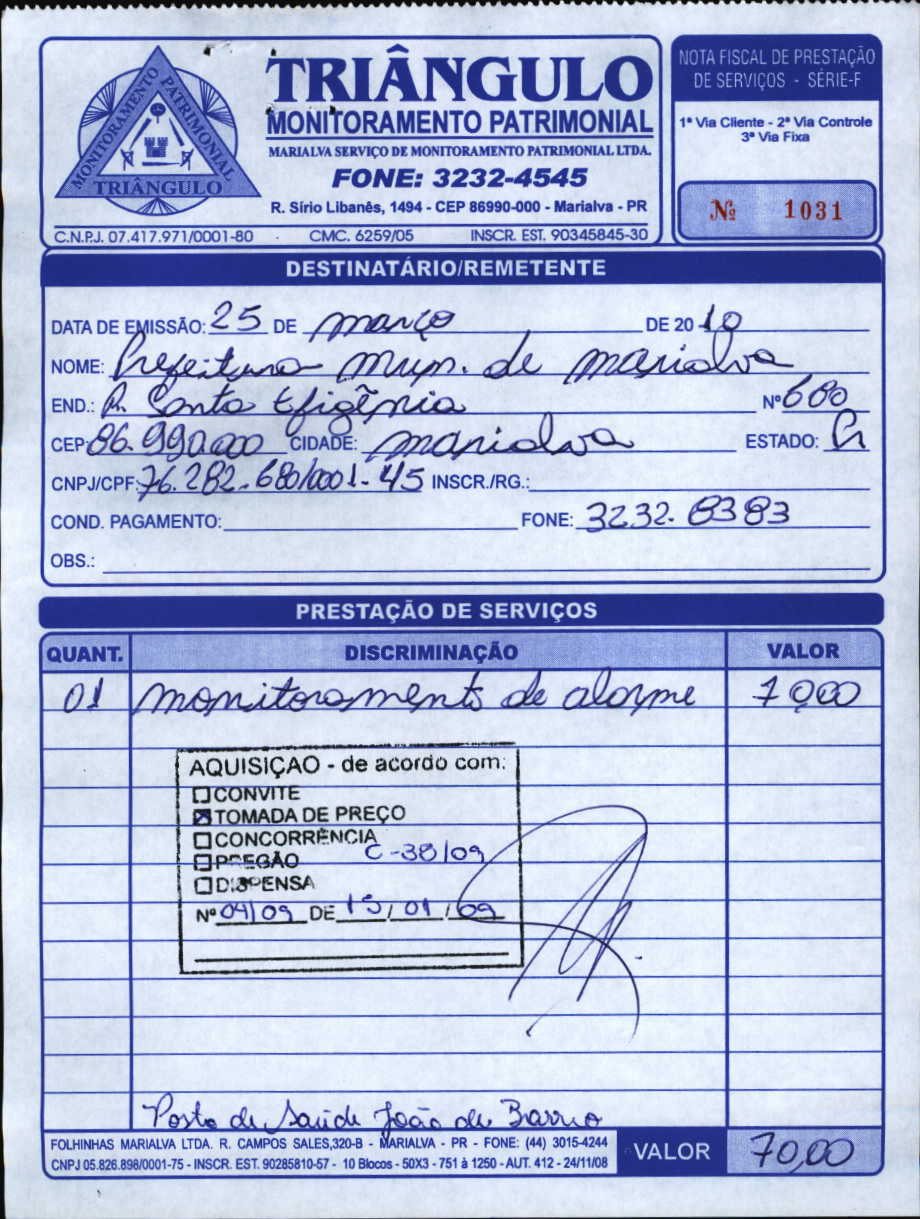 TRIÂNGULO
MONITORAMENTO PATRIMONIAL
MARIALVA SERVIÇO DE MONITORAMENTO PATRIMONIAL LTDA.
FONE: 3232-4545
R. Sírio Libanês, 1494 - CEP 86990-000 - Marialva - PR
C.N.P.J. 07.417.971/0001-80 CMC. 6259/05 INSCR. EST. 90345845-30
MONITORAMENTO PATRIMONIAL
TRIÂNGULO
NOTA FISCAL DE PRESTAÇÃO
DE SERVIÇOS - SÉRIE-F
1ª Via Cliente - 2ª Via Controle
3ª Via Fixa
Nº 1031
DESTINATÁRIO/REMETENTE
DATA DE EMISSÃO: 25 DE março DE 2010
NOME: Prefeitura Mun. de Marialva
END.: R. Santa Efigênia Nº 680
CEP: 86.990.000 CIDADE: Marialva ESTADO: Pr
CNPJ/CPF: 76.282.680/001-45 INSCR./RG.:
COND. PAGAMENTO: FONE: 3232-8383
OBS.:
PRESTAÇÃO DE SERVIÇOS
QUANT. DISCRIMINAÇÃO VALOR
01 monitoramento de alarme 70,00
AQUISIÇAO - de acordo com:
CONVITE
TOMADA DE PREÇO
CONCORRÊNCIA
C-38/09
PREGÃO
DISPENSA
Nº 04/09 DE 15/01/09
Posto de Saúde João de Barro
FOLHINHAS MARIALVA LTDA. R. CAMPOS SALES,320-B - MARIALVA - PR - FONE: (44) 3015-4244
CNPJ 05.826.898/0001-75 - INSCR. EST. 90285810-57 - 10 Blocos - 50X3 - 751 à 1250 - AUT. 412 - 24/11/08
VALOR 70,00